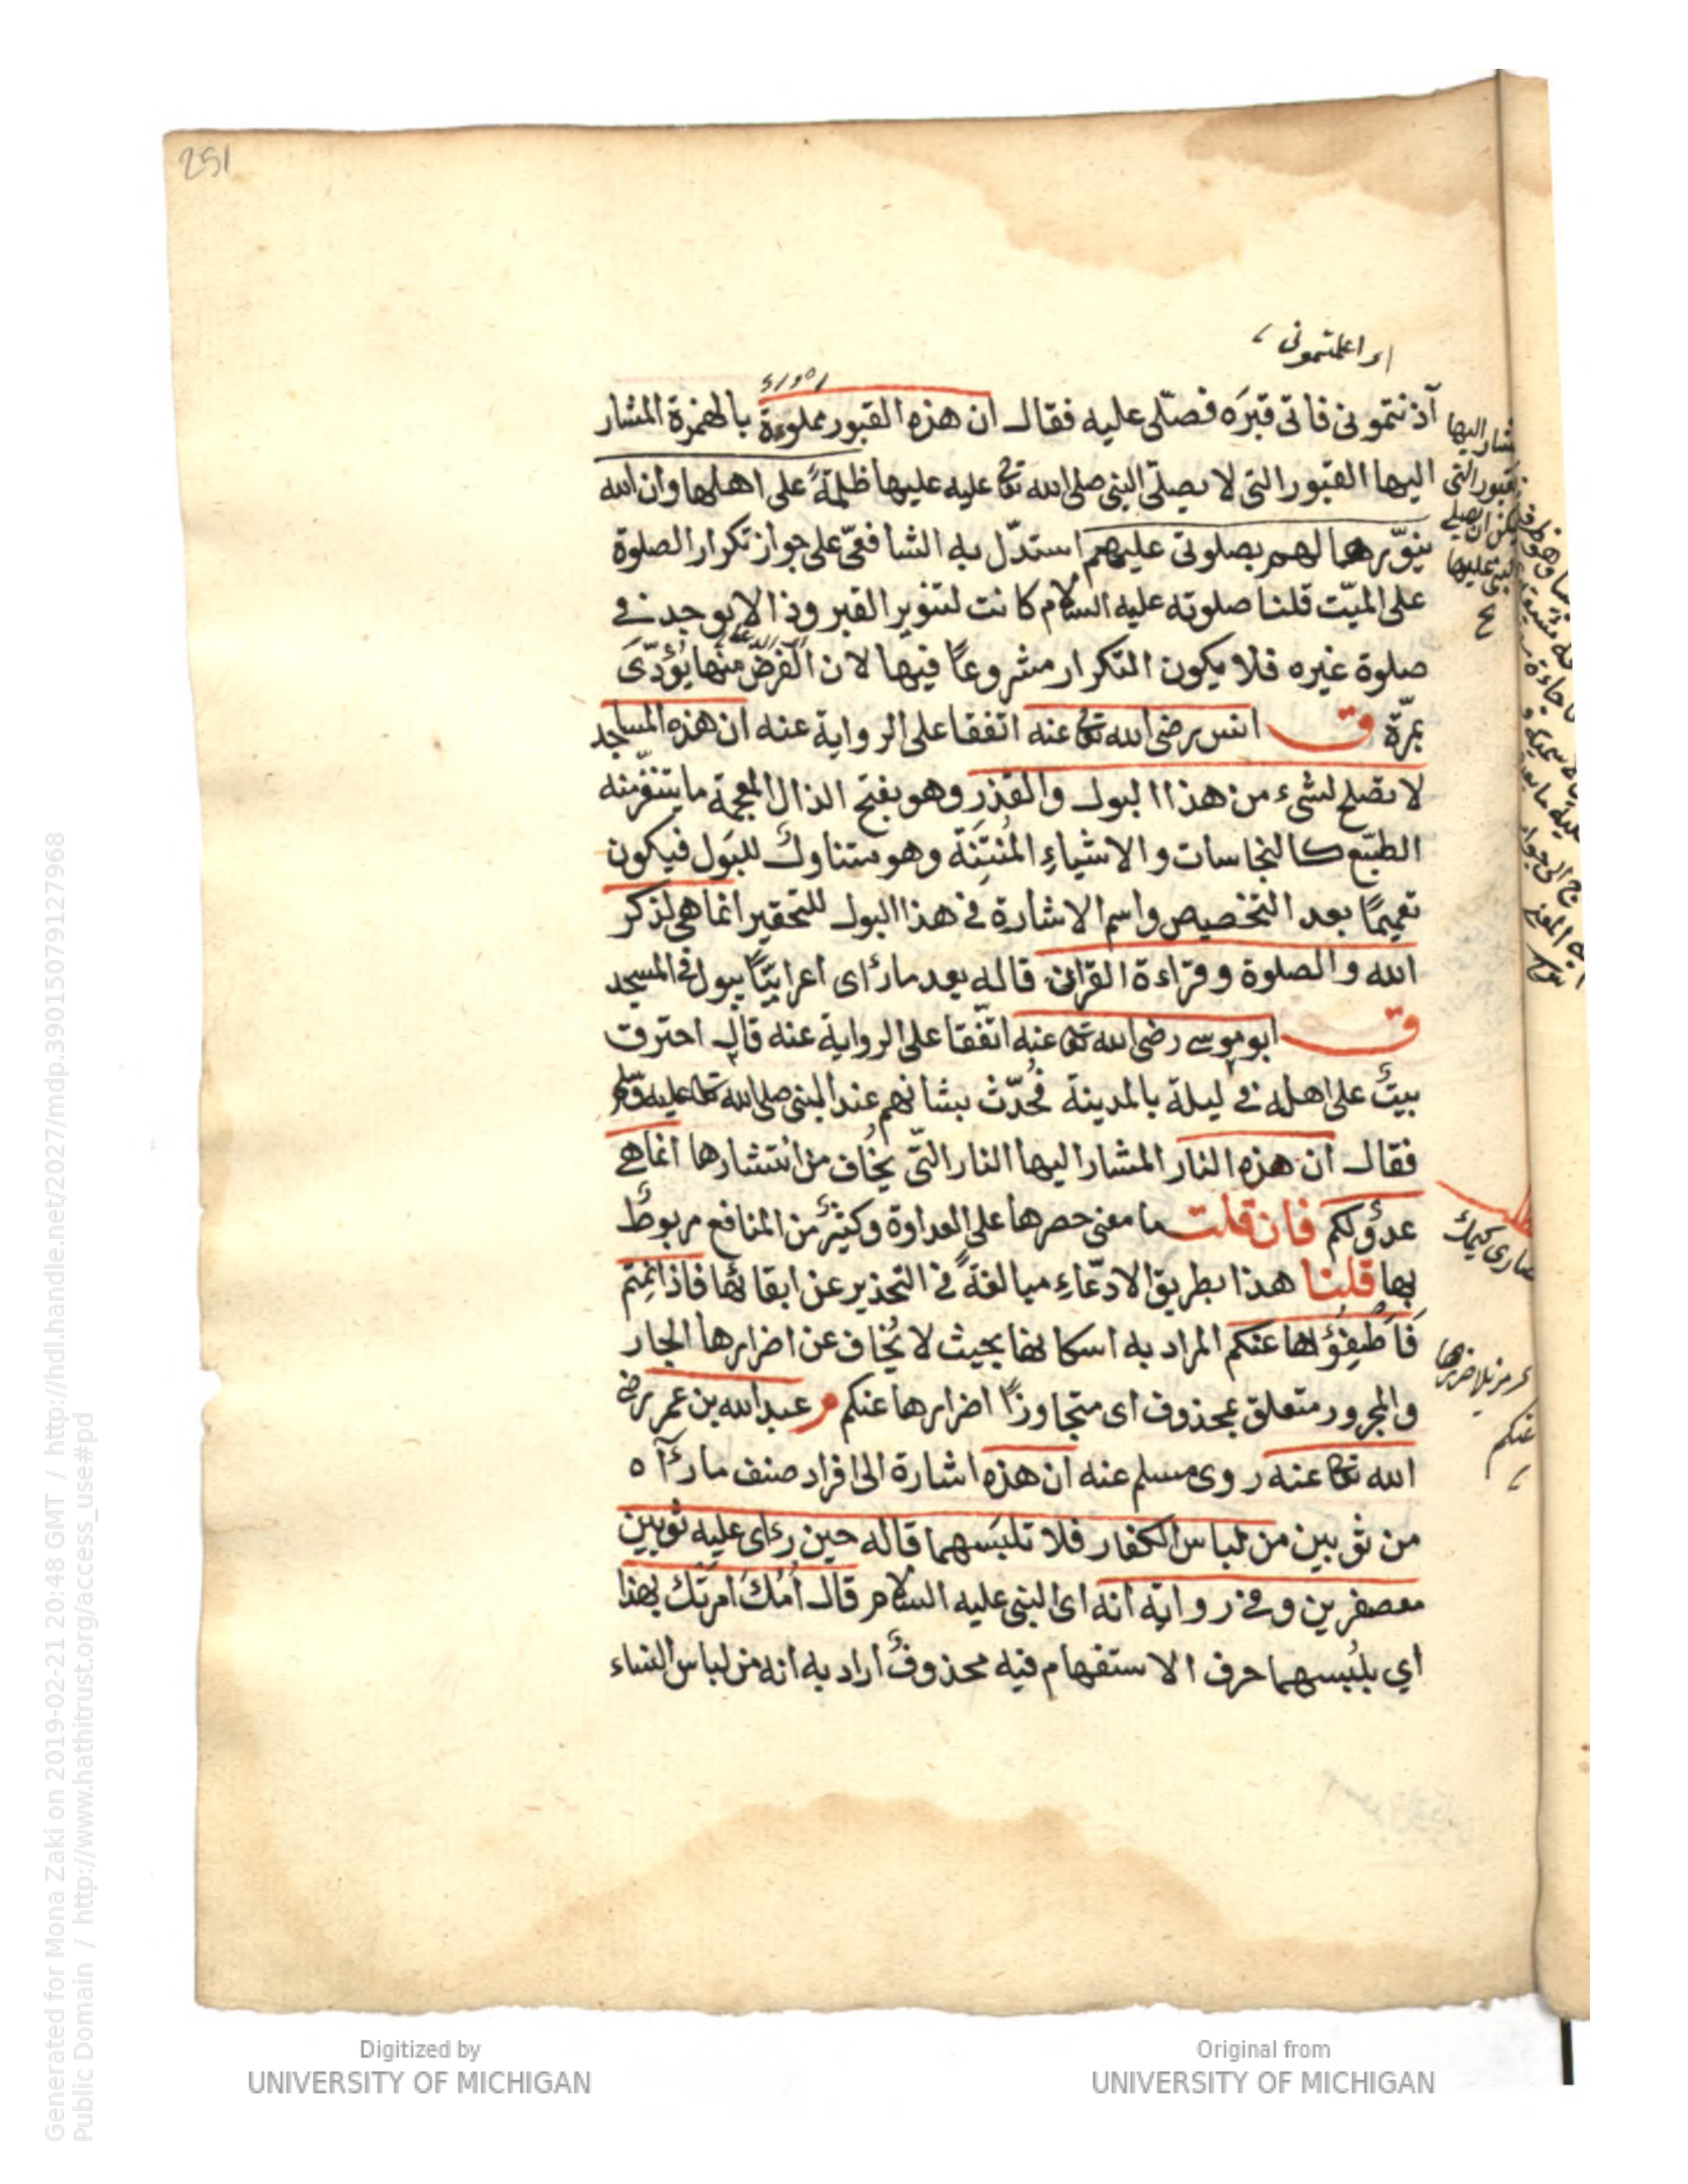 251
اى اعلمتمونى
آذنتمونى فاتى قبرَه فصلّى عليه فقال ان هذه القبور مملوءة بالهمزة المشار
اليها القبور التى لا يصلّى النبى صلى الله تعالى عليه عليها ظلمةً على اهلها وان الله
ينوّرها لهم بصلوتى عليهم استدلّ به الشافعىّ على جواز تكرار الصلوة
على الميّت قلنا صلوته عليه السلام كانت لتنوير القبر وذا لا يوجد فى
صلوة غيره فلا يكون التكرار مشروعًا فيها لان الفرض منها يُؤدّى
بمرّة ق انس رضى الله تعالى عنه اتفقا على الرواية عنه ان هذه المساجد
لا تصلح لشىء من هذا البول والقذر وهو بفتح الذال المعجمة ما يتنفّر منه
الطبع كالنجاسات والاشياءِ المُنتِنَة وهو متناول للبَول فيكون
تعميمًا بعد التخصيص واسم الاشارة فى هذا البول للتحقير انما هى لذكر
الله والصلوة وقراءة القران قاله بعد ما رأى اعرابيًّا يبول فى المسجد
ق ابو موسى رضى الله تعالى عنه اتّفقا على الرواية عنه قال احترقت
بيتٌ على اهله فى ليلة بالمدينة فحُدّث بشانهم عند النبى صلى الله تعالى عليه وسلم
فقال ان هذه النار المشار اليها النار التى يخُاف من انتشارها انما هى
عدوٌ لكم فان قلت ما معنى حصرها على العداوة وكثيرٌ من المنافع مربوطٌ
بها قلنا هذا بطريق الادّعاءِ مبالغةً فى التحذير عن ابقائها فاذا نمتم
فَاَطْفِؤُها عنكم المراد به اسكانها بحيث لا يُخاف عن اضرارها الجار
والمجرور متعلق بمحذوف اى متجاوزًا اضرارها عنكم م عبد الله بن عمر رضى
الله تعالى عنه روى مسلم عنه ان هذه اشارة الى افراد صنف ما رآه
من ثوبين من لباس الكفار فلا تلبَسهما قاله حين رءاى عليه ثوبين
معصفرين وفى رواية انه اى النبى عليه السلام قال اُمّك اَمرَتك بهذا
اي بلُبسهما حرف الاستفهام فيه محذوفٌ اراد به انه من لباس النساء
Digitized by
UNIVERSITY OF MICHIGAN
Original from
UNIVERSITY OF MICHIGAN
Generated for Mona Zaki on 2019-02-21 20:48 GMT / http://hdl.handle.net/2027/mdp.39015079127968
Public Domain / http://www.hathitrust.org/access_use#pd